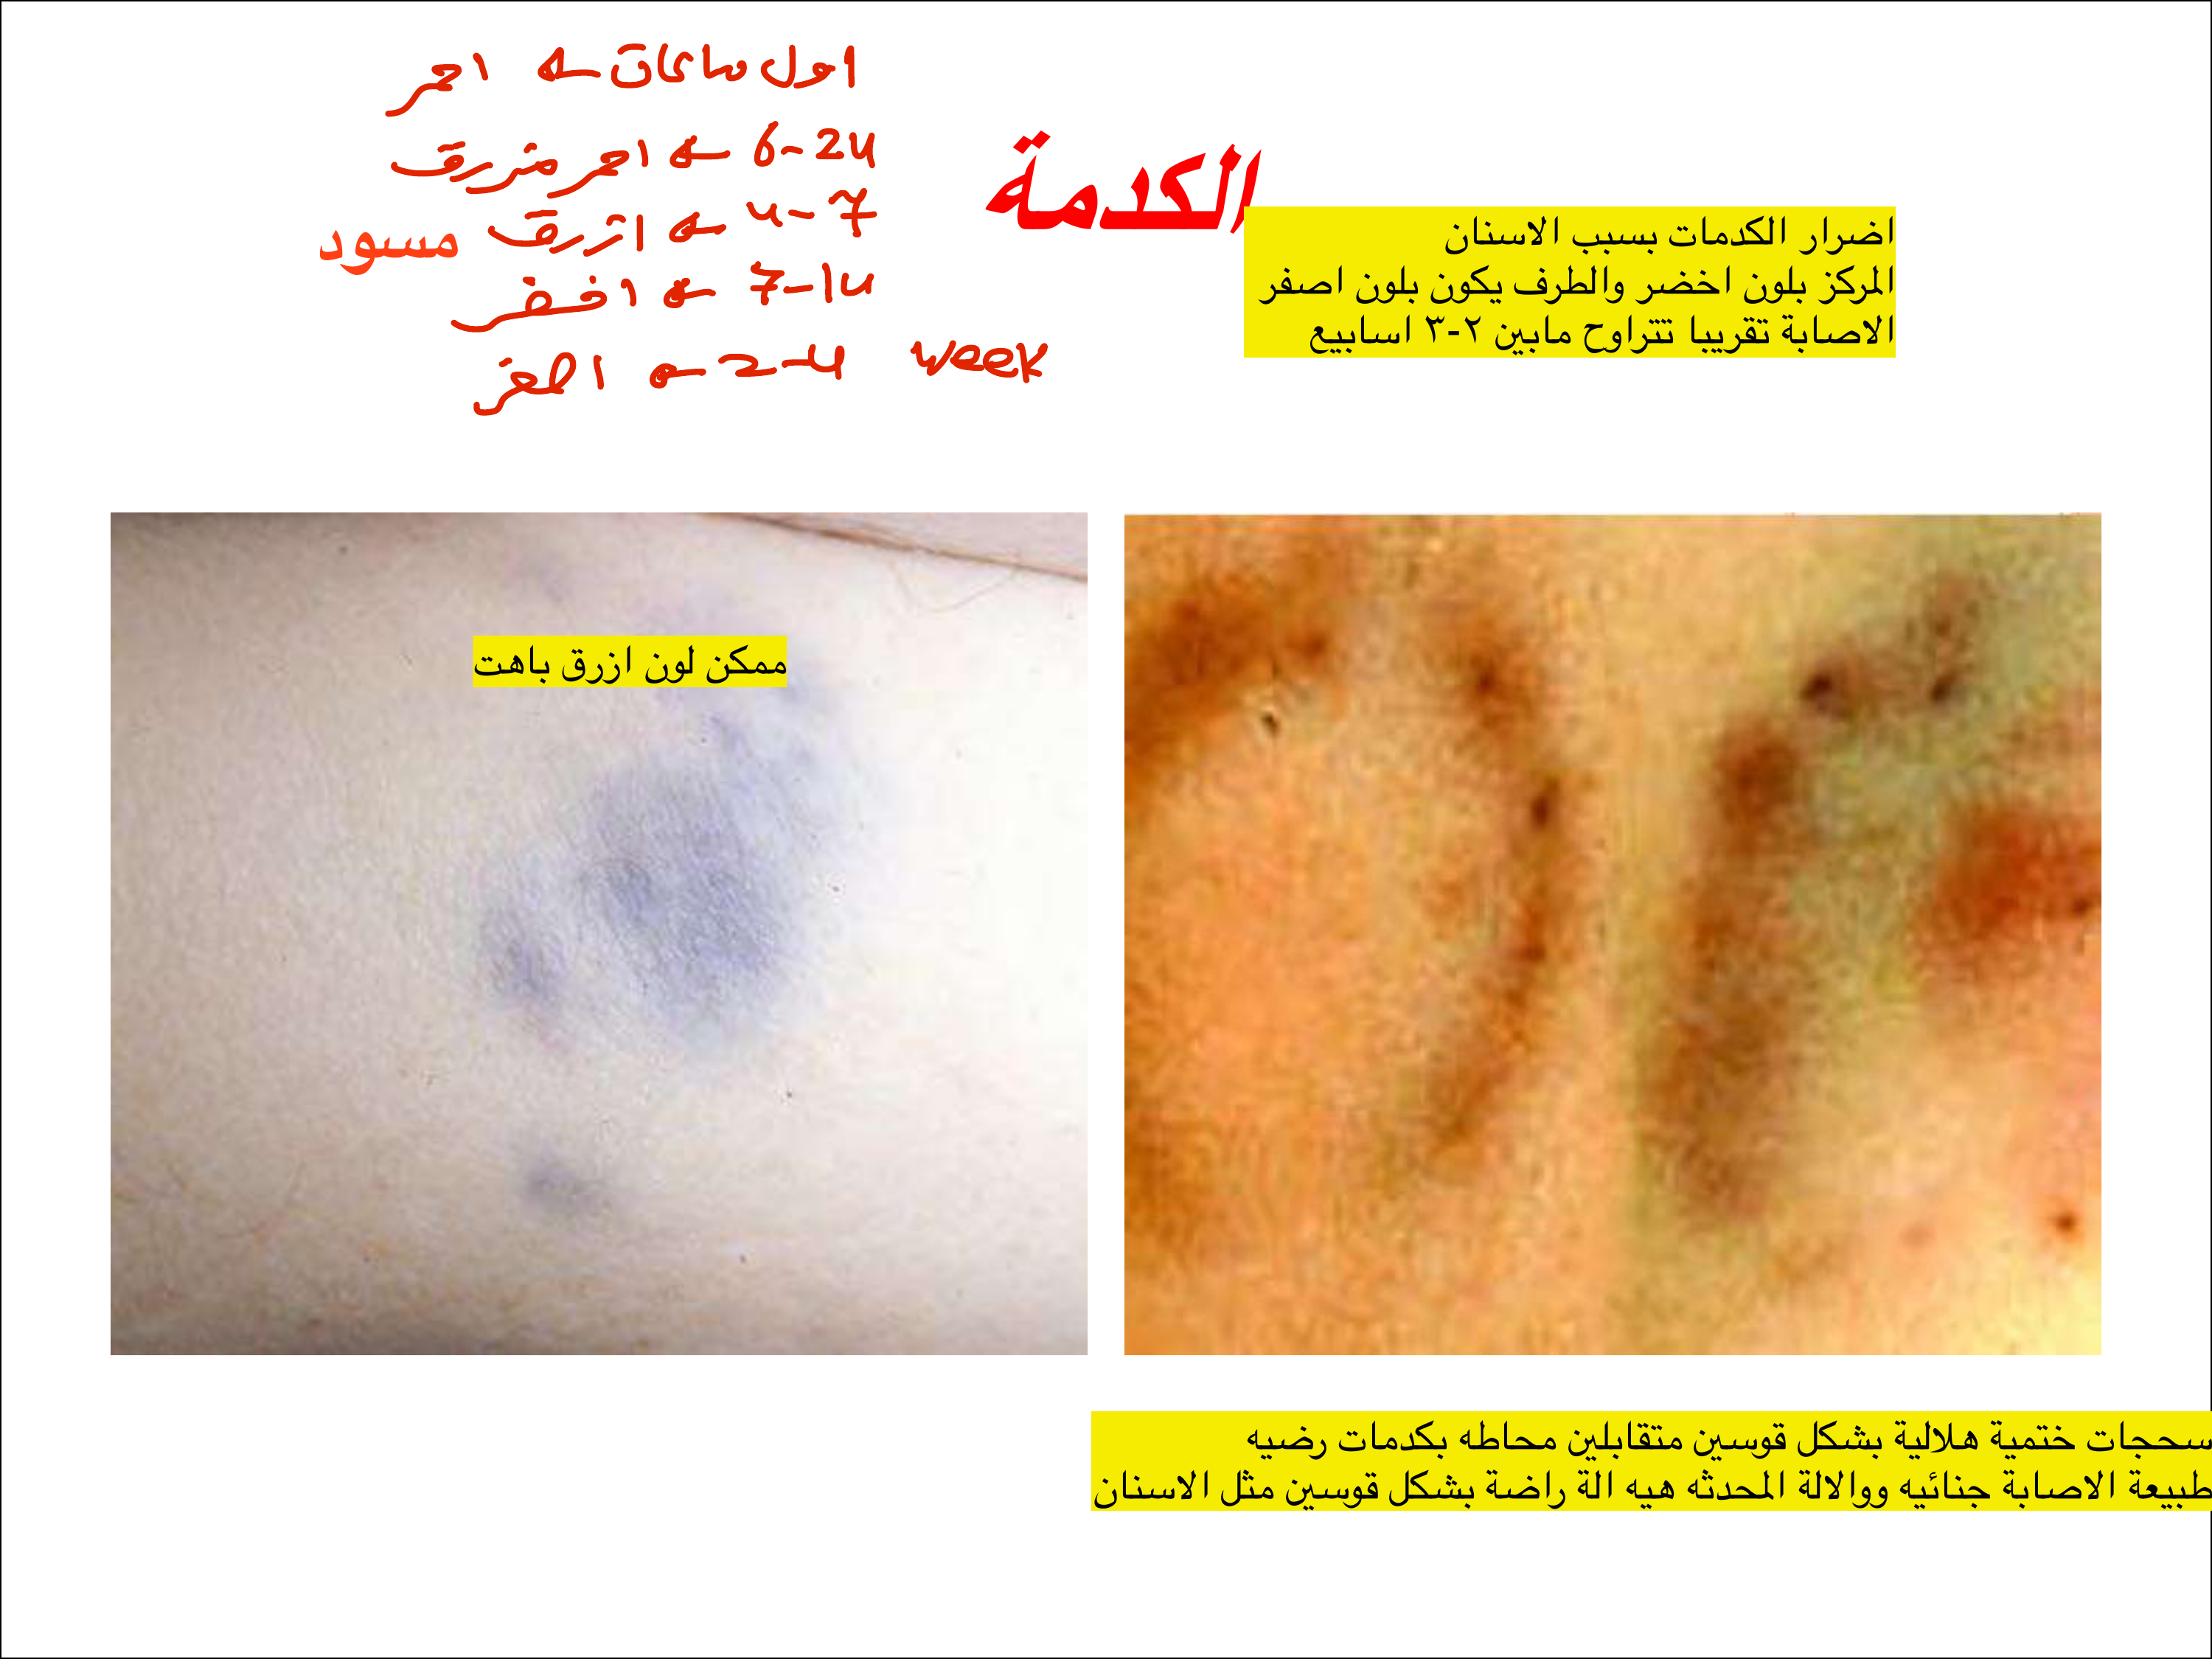 اول ساعات ← احمر
6-24 ← احمر مزرق
4-7 ← ازرق مسود
7-14 ← اخضر
2-4 week ← اصفر
الكدمة
اضرار الكدمات بسبب الاسنان
المركز بلون اخضر والطرف يكون بلون اصفر
الاصابة تقريبا تتراوح مابين ٢-٣ اسابيع
ممكن لون ازرق باهت
سحجات ختمية هلالية بشكل قوسين متقابلين محاطه بكدمات رضيه
طبيعة الاصابة جنائيه ووالالة المحدثه هيه الة راضة بشكل قوسين مثل الاسنان